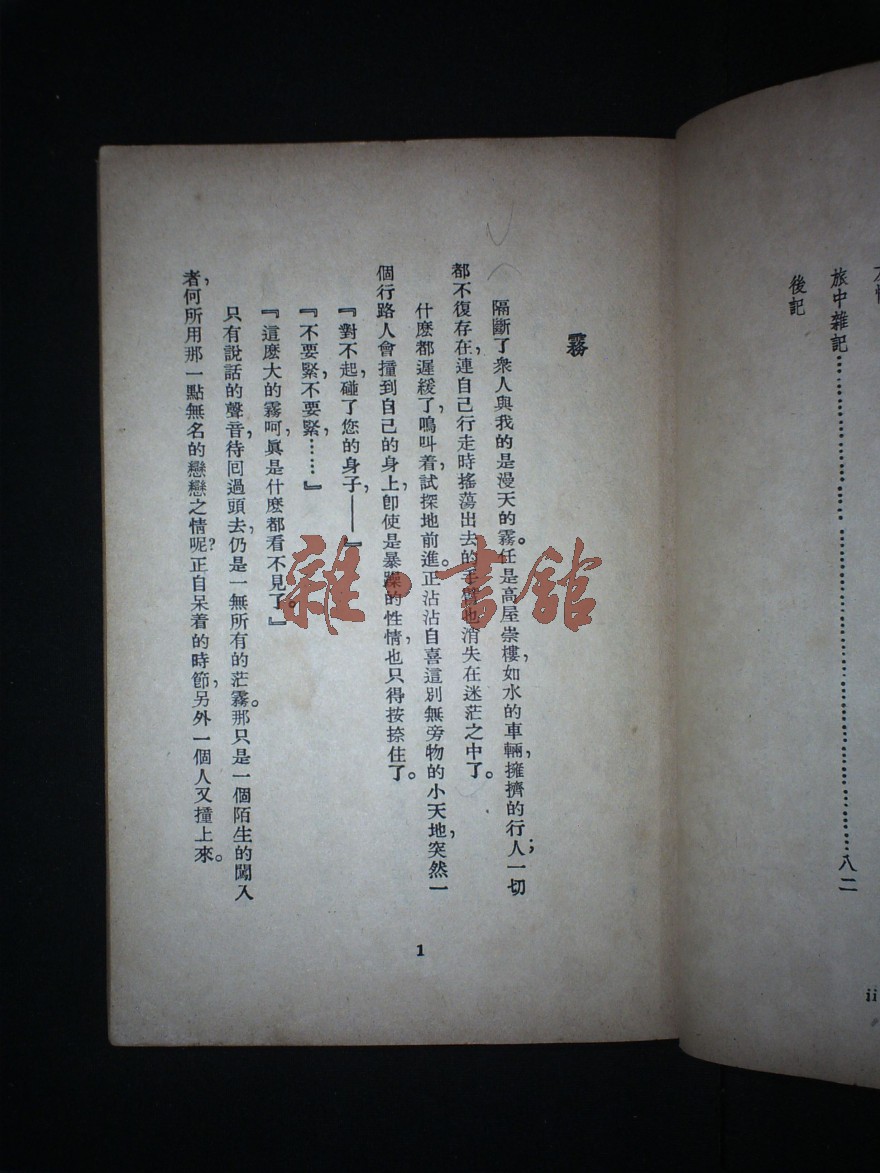 旅中雜記……………………………………八二
後記
ii
霧
隔斷了衆人與我的是漫天的霧。任是高屋崇樓，如水的車輛，擁擠的行人；一切
都不復存在，連自己行走時搖蕩出去的手臂也消失在迷茫之中了。
什麽都遲緩了，鳴叫着試探地前進。正沾沾自喜這別無旁物的小天地，突然一
個行路人會撞到自己的身上，卽使是暴躁的性情也只得按捺住了。
『對不起，碰了您的身子，——』
『不要緊，不要緊……』
『這麽大的霧呵，眞是什麽都看不見了。』
只有說話的聲音，待囘過頭去，仍是一無所有的茫霧。那只是一個陌生的闖入
者，何所用那一點無名的戀戀之情呢？正自呆着的時節，另外一個人又撞上來。
1
雜·書館